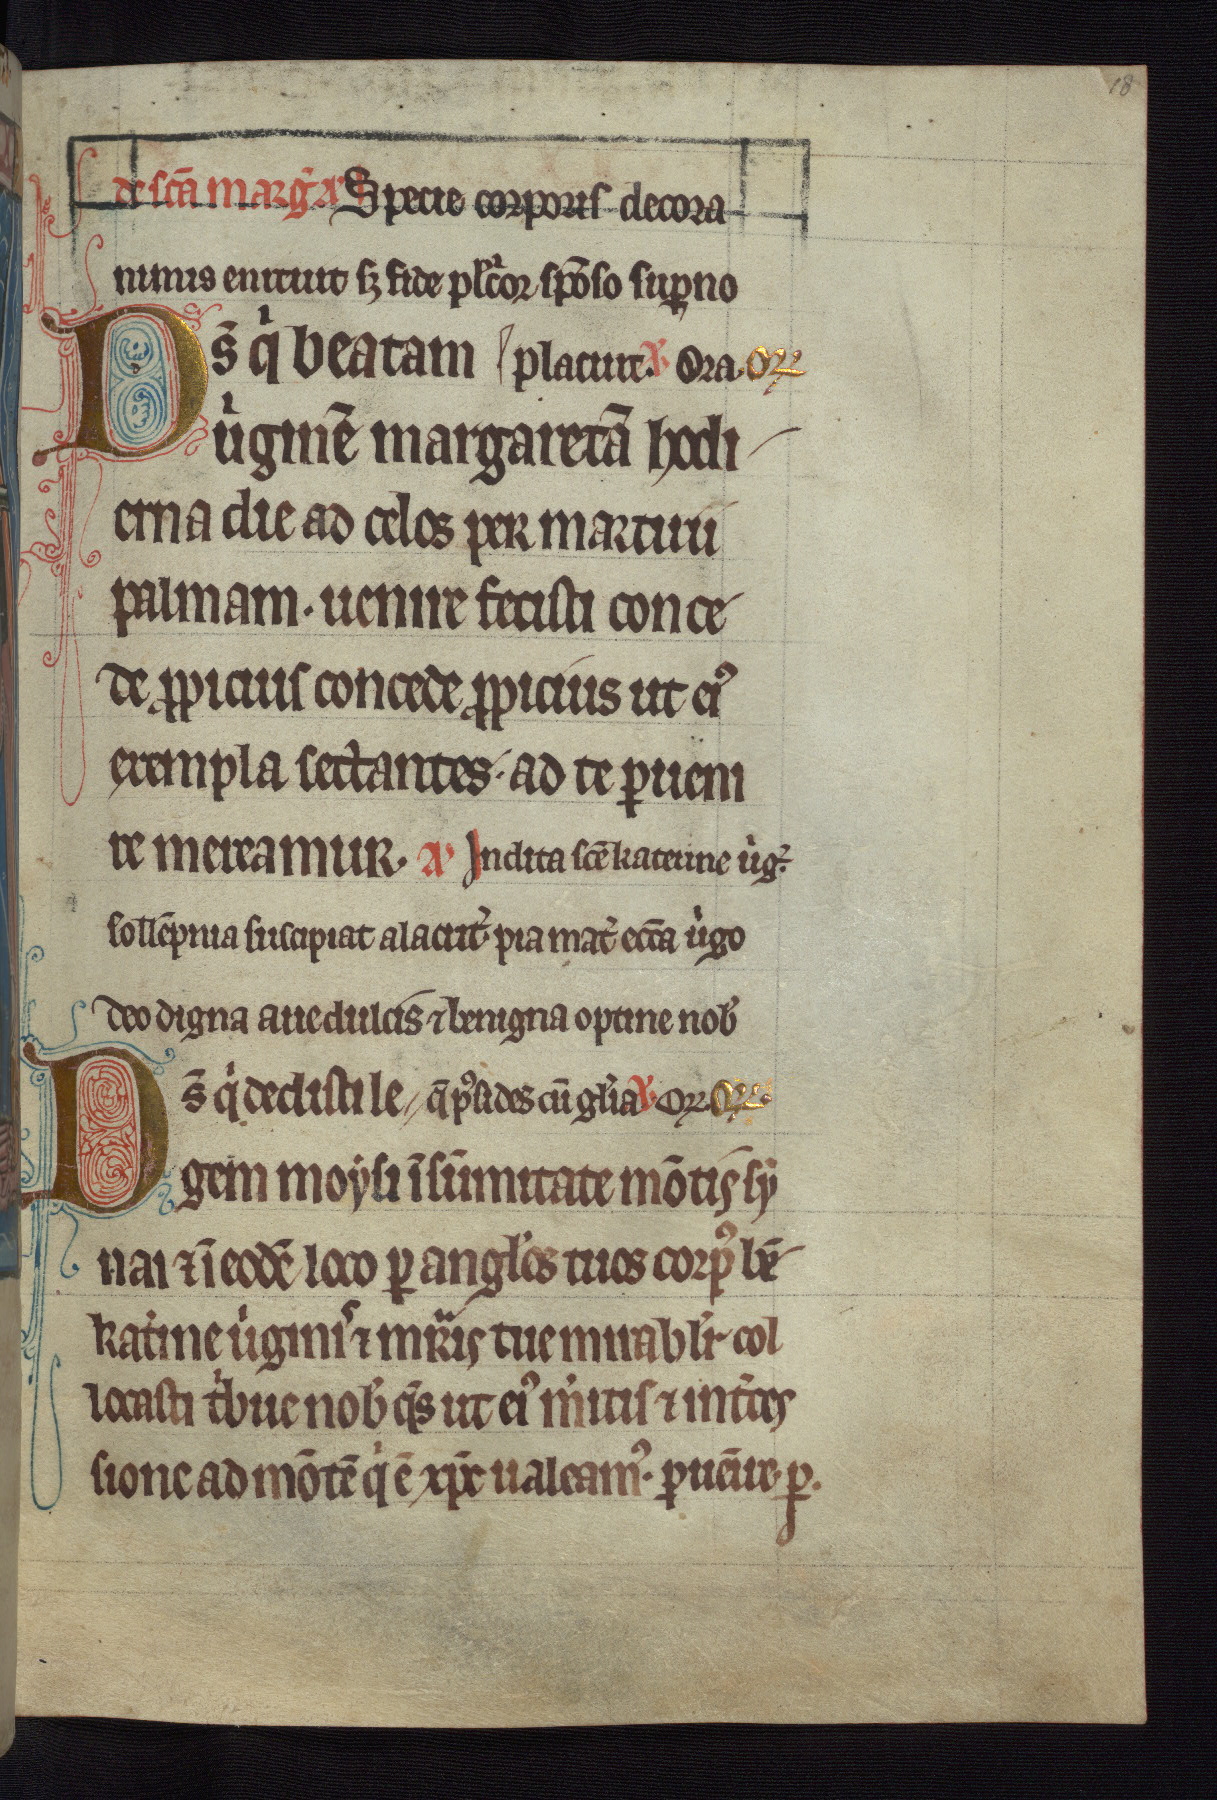 18
de scā margˀ Aˀ Specie corporis decora
nimis enituit sꝫ fide pl̄cˀor spōso suꝑno
Ds̄ qͥ beatam placuit. ꝟ. Ora. Oꝛ
uͥginē margaretā hodi
erna die ad celos per martirii
palmam. uenire fecisti conce
de ꝓpicius concede ꝓpicius ut eiꝰ
exempla sectantes. ad te ꝑueni
re mereamur. Aˀ Indita scē katerine uͥgˀ.
sollēpnia suscipiat alacritˀ pia matˀ eccā uͥgo
deo digna aue dulcis ⁊ benigna optine nobˀ
Ds̄ qͥ dedisti le q̄ pꝰsides cū gl̄ia ꝟ. Oꝛ. Oꝛ
gem moẏsi ī sūmitate mōtis sẏ
nai ⁊ ī eodē loco ꝑ angl̄os tuos corpꝰ bē
katˀine uͥginiˢ ⁊ mr̄is tue mirabl̓r col
locasti tͥbue nobˀ q̄s ut eiꝰ mˀitis ⁊ intˀces
sione ad mōtē qͥ ē xp̄c ualeamꝰ. ꝑuēire. ꝑ.